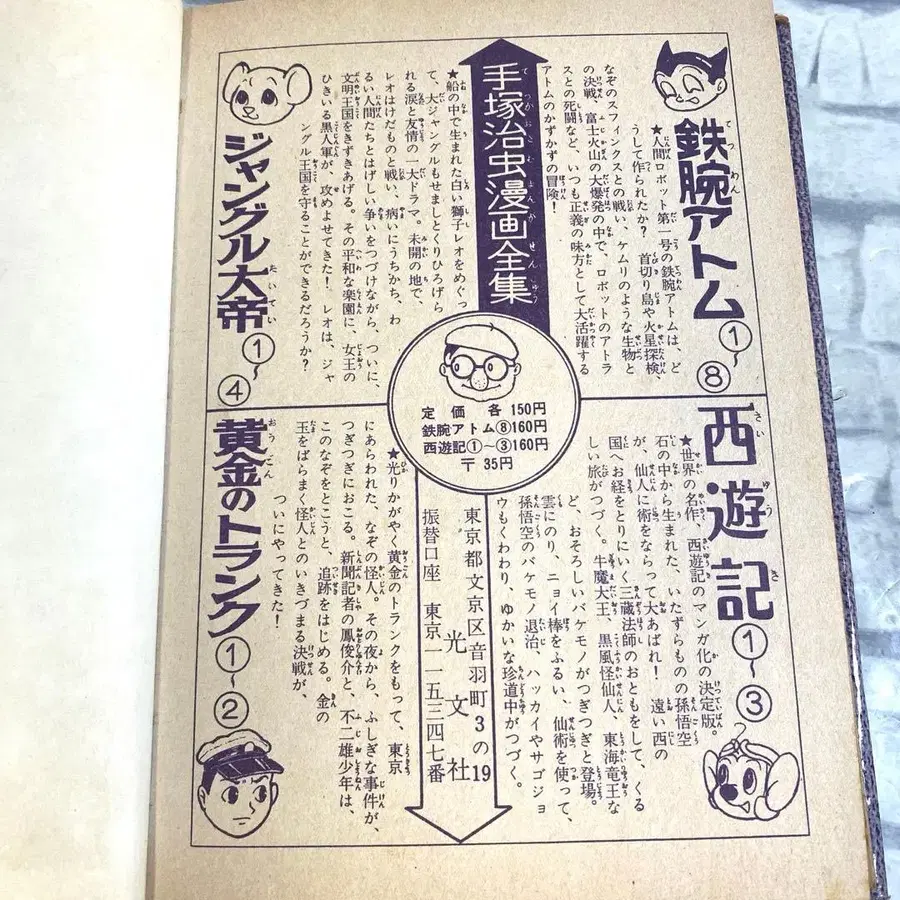 手塚治虫漫画全集
鉄腕アトム①～⑧
★人間ロボット第一号の鉄腕アトムは、ど
うして作られたか？　首切り島や火星探検、
なぞのスフィンクスとの戦い、ケムリのような生物と
の決戦、富士火山の大爆発の中で、ロボットのアトラ
スとの死闘など、いつも正義の味方として大活躍する
アトムのかずかずの冒険！
ジャングル大帝①～④
★船の中で生まれた白い獅子レオをめぐっ
て、大ジャングルもせましとくりひろげら
れる涙と友情の一大ドラマ。未開の地で、
レオはけだものと戦い、病いにうちかち、わ
るい人間たちとはげしい争いをつづけながら、ついに、
文明王国をきずきあげる。その平和な楽園に、女王の
ひきいる黒人軍が、攻めよせてきた！　レオは、ジャ
ングル王国を守ることができるだろうか？
定価　各150円
鉄腕アトム⑧160円
西遊記①～③160円
〒35円
西遊記①～③
★世界の名作、西遊記のマンガ化の決定版。
石の中から生まれた、いたずらものの孫悟空
が、仙人に術をならって大あばれ！　遠い西の
国へお経をとりにいく三蔵法師のおともをして、くる
しい旅がつづく。牛魔大王、黒風怪仙人、東海竜王な
ど、おそろしいバケモノがつぎつぎと登場。
雲にのり、ニョイ棒をふるい、仙術を使って、
孫悟空のバケモノ退治、ハッカイやサゴジョ
ウもくわわり、ゆかいな珍道中がつづく。
東京都文京区音羽町3の19
光文社
振替口座　東京一一五三四七番
黄金のトランク①～②
★光りかがやく黄金のトランクをもって、東京
にあらわれた、なぞの怪人。その夜から、ふしぎな事件が、
つぎつぎにおこる。新聞記者の鳳俊介と、不二雄少年は、
このなぞをとこうと、追跡をはじめる。金の
玉をばらまく怪人とのいきづまる決戦が、
ついにやってきた！